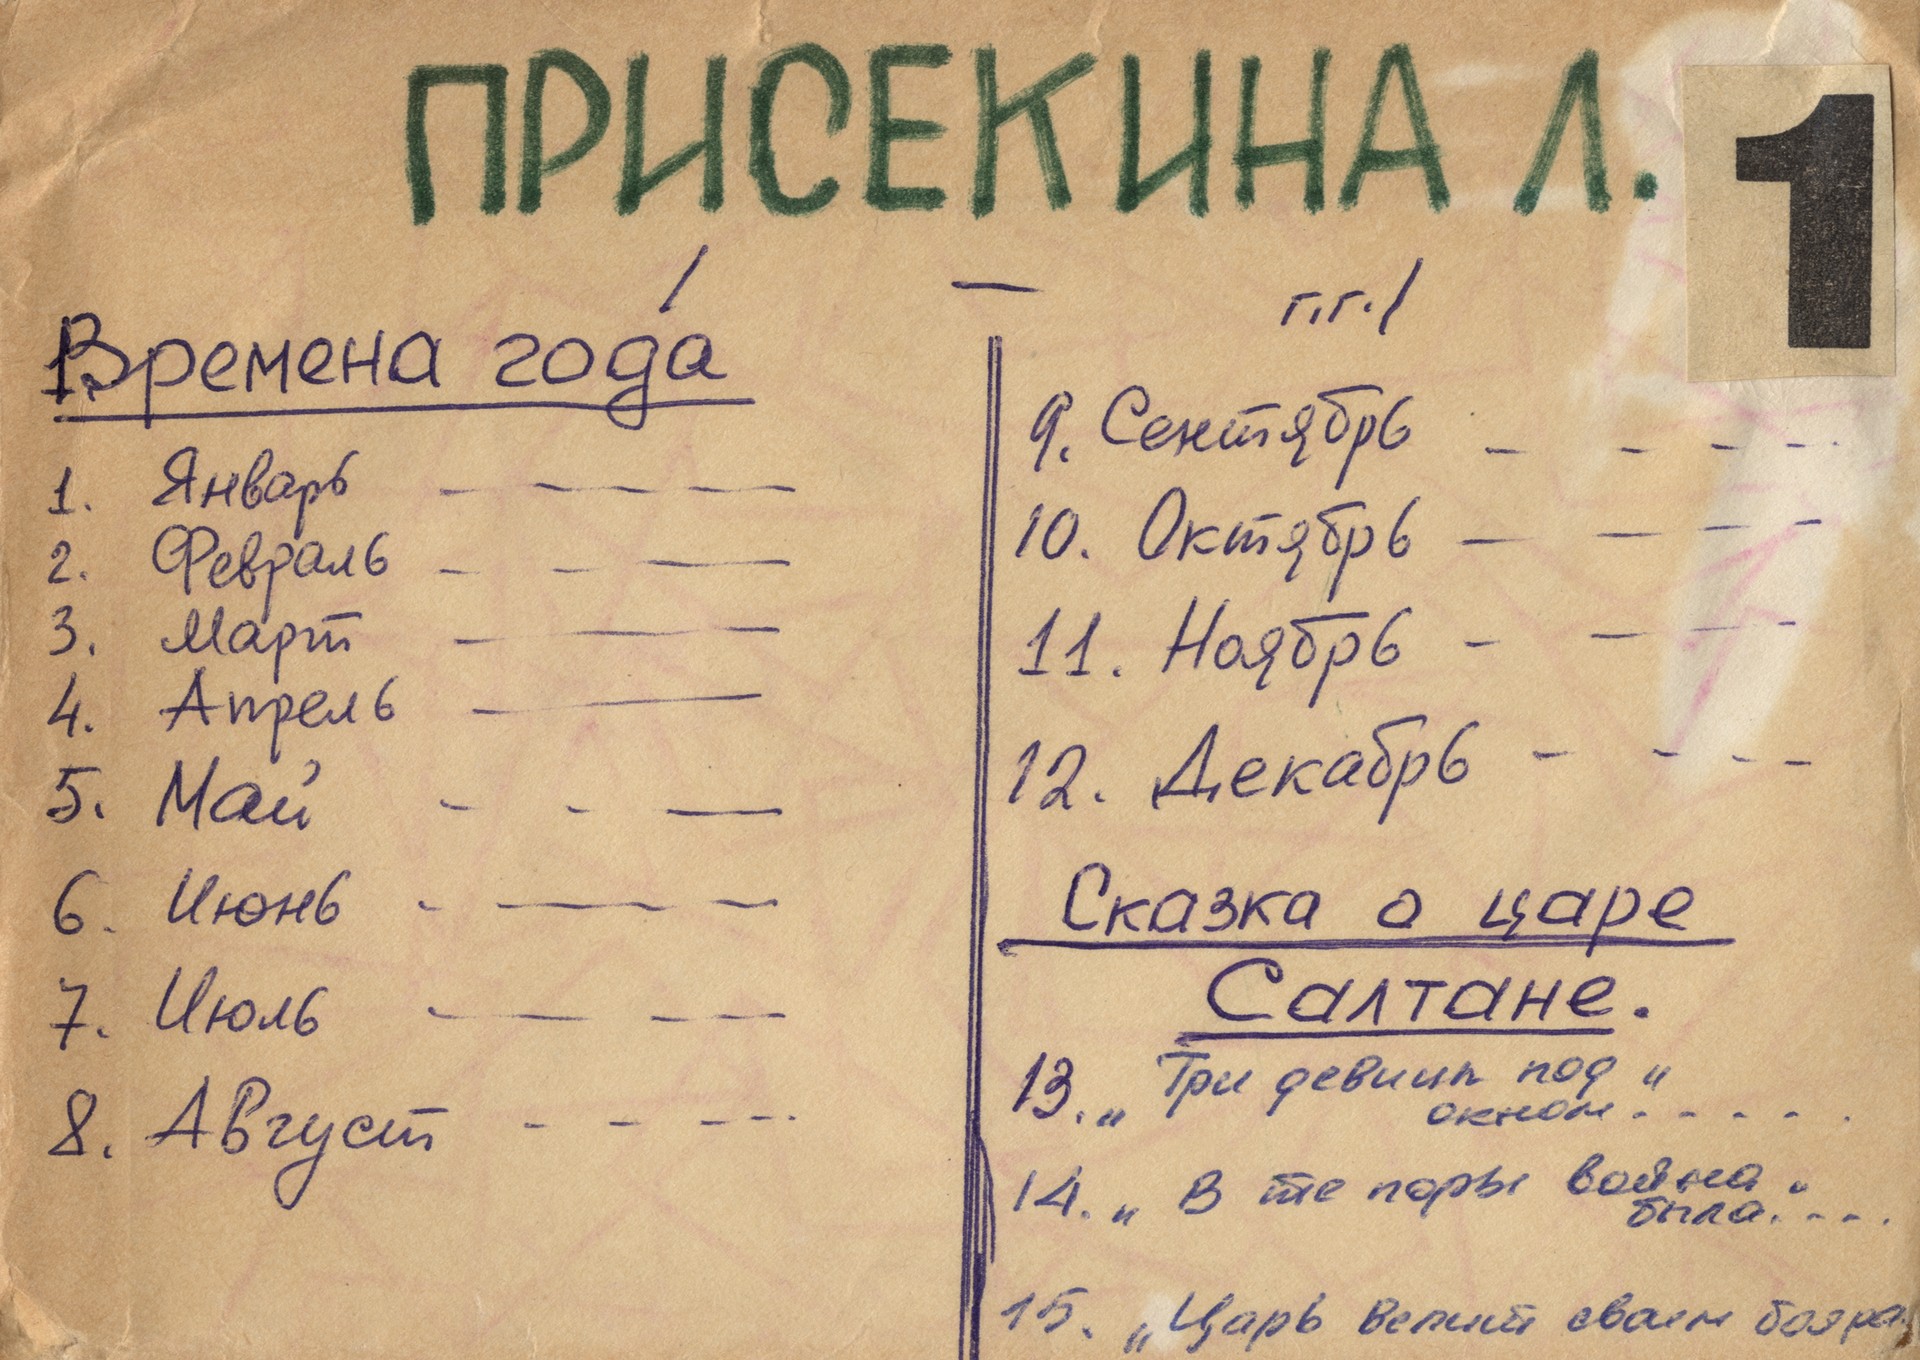 ПРИСЕКИНА Л.
1
/ — г.г./
Времена года
1. Январь — — — —
2. Февраль — — —
3. Март — — —
4. Апрель — —
5. Май - - —
6. Июнь - — - -
7. Июль - — - -
8. АВгуст - - - -
9. Сентябрь - - - -
10. Октябрь — — - -
11. Ноябрь - — - -
12. Декабрь - - - -
Сказка о царе
Салтане.
13. „Три девицы под "
окном . - - - - .
14. „В те поры война "
была. - - - .
15. „Царь велит своим бояра